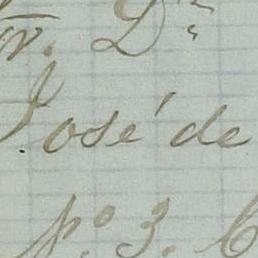 r. Dn
José de
p.º 3.